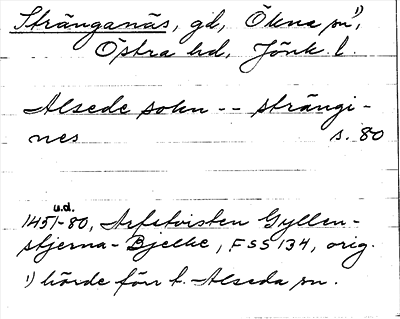 Stränganäs, gd, Ökna sn¹⁾,
Östra hd, Jönk. l.
Alsede sokn -- strängi-
nes s. 80
u.d.
1451-80, Arfstvisten Gyllen-
stjerna-Bjelke, FSS 134, orig.
¹⁾ hörde förr t. Alseda sn.